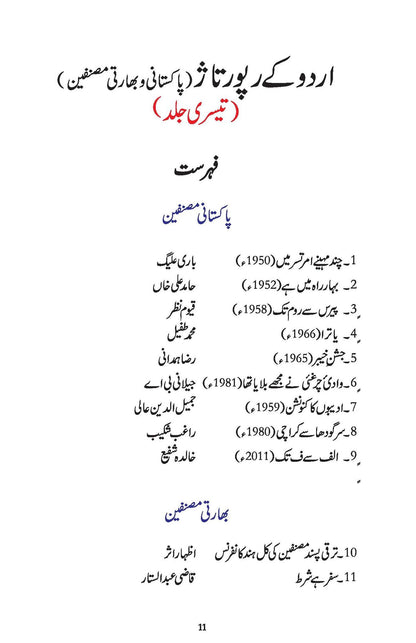 اردو کے رپورتاژ (پاکستانی و بھارتی مصنفین)
(تیسری جلد)
فہرست
پاکستانی مصنفین
1۔ چند مہینے امرتسر میں (1950ء) باری علیگ
2۔ بہار راہ میں ہے (1952ء) حامد علی خاں
3۔ پیرس سے روم تک (1958ء) قیوم نظر
4۔ یاترا (1966ء) محمد طفیل
5۔ جشن خیبر (1965ء) رضا ہمدانی
6۔ وادیٔ چرغئی نے مجھے بلایا تھا (1981ء) جیلانی بی اے
7۔ ادیبوں کا کنونشن (1959ء) جمیل الدین عالی
8۔ سرگودھا سے کراچی (1980ء) راغب شکیب
9۔ الف سے ف تک (2011ء) خالدہ شفیع
بھارتی مصنفین
10۔ ترقی پسند مصنفین کی کل ہند کانفرنس اظہار اثر
11۔ سفر ہے شرط قاضی عبدالستار
11